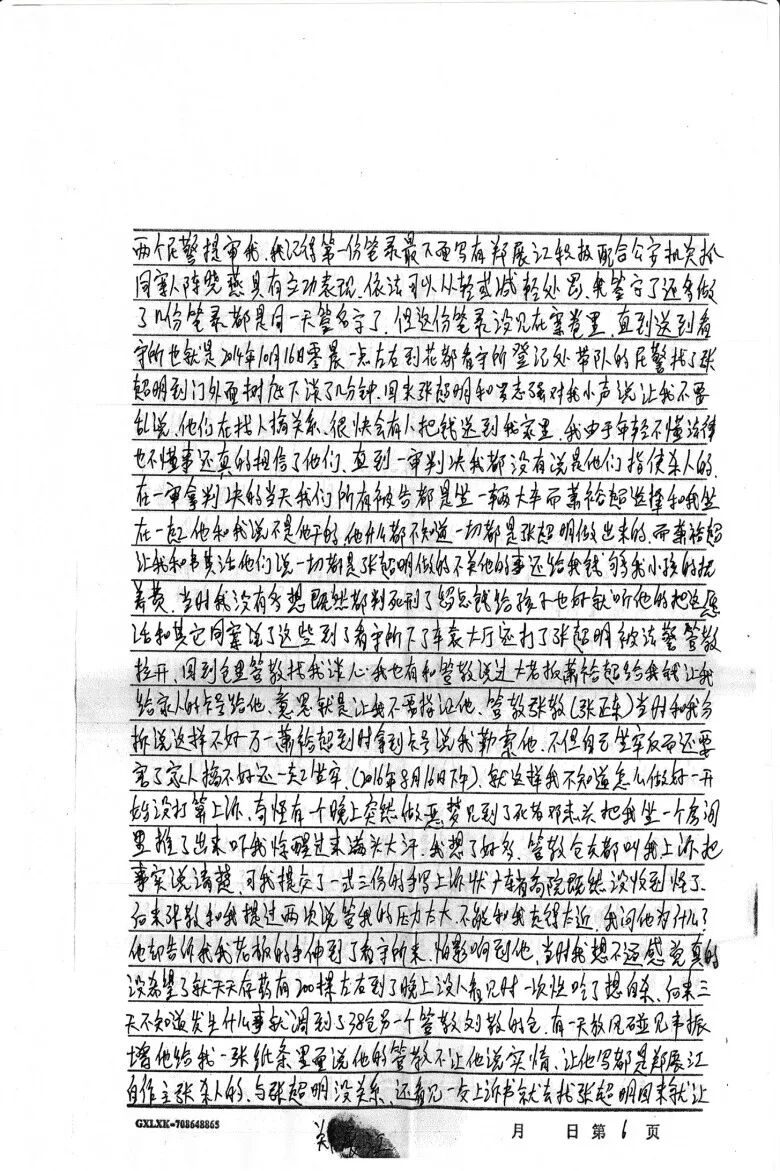 两个民警提审我.我记得第一份笔录最下面写有郑展江积极配合公安机关抓
同案人陈晓燕具有立功表现.依法可以从轻或减轻处罚.我签字了还多做
了几份笔录都是同一天签名字了.但这份笔录没见在案卷里.直到送到看
守所也就是2014年10月16日零晨一点左右到花都看守所登记处带队的民警找了张
超明到门外面树底下谈了几分钟.回来张超明和 志强对我小声说让我不要
乱说.他们在找人搞关系.很快会有人把钱送到我家里.我由于年轻不懂法律
也不懂事还真的相信了他们.直到一审判决我都没有说是他们指使杀人的.
在一审拿判决的当天我们所有被告都是坐一辆大车而萧裕超选择和我坐
在一起他和我说不是他干的.他什么都不知道一切都是张超明做出来的.而萧裕超
让我和韦其法他们说一切都是张超明做的不关他的事还给我钱 我小孩的抚
养费.当时我没有多想既然都判死刑了 点钱给孩子也好就听他的把这
话和其它同案说了这些到了看守所下了车 大厅还打了张超明被法警管教
拉开.回到仓里管教找我谈心我也有和管教说过大老板萧裕超给我钱让我
给家人的卡号给他.意思就是让我不要指证他.管教张教(张正东)当时和我分
析说这样不好万一萧裕超到时拿到卡号说我勒索他.不但自己坐牢反而还要
害了家人搞不好还一起坐牢.(2016年8月16日下午).就这样我不知道怎么做好一开
始没打算上诉.奇怪有一个晚上突然做恶梦见到了死者邓来兴把我坐一个房间
里推了出来吓我惊醒过来满头大汗.我想了好多.管教仓友都叫我上诉把
事实说清楚.可我提交了一式三份的手写上诉状广东省高院既然没收到 了.
后来张教和我提过两次说管我的压力太大.不能和我走得太近.我问他为什么?
他却告诉我我老板的手伸到了看守所来.怕影响到他.当时我想不通感觉真的
没希望了就天天存药有200粒左右到了晚上没人看见时一次性吃了想自杀.后来三
天不知道发生什么事就调到了38仓另一个管教刘教的仓.有一天放风碰见韦振
增他给我一张纸条里面说他的管教不让他说实情.让他写都是郑展江
自作主张杀人的.与张超明没关系.还看见一交上诉书就去找张超明回来就让
GXLXK-708648865
月 日 第 6 页